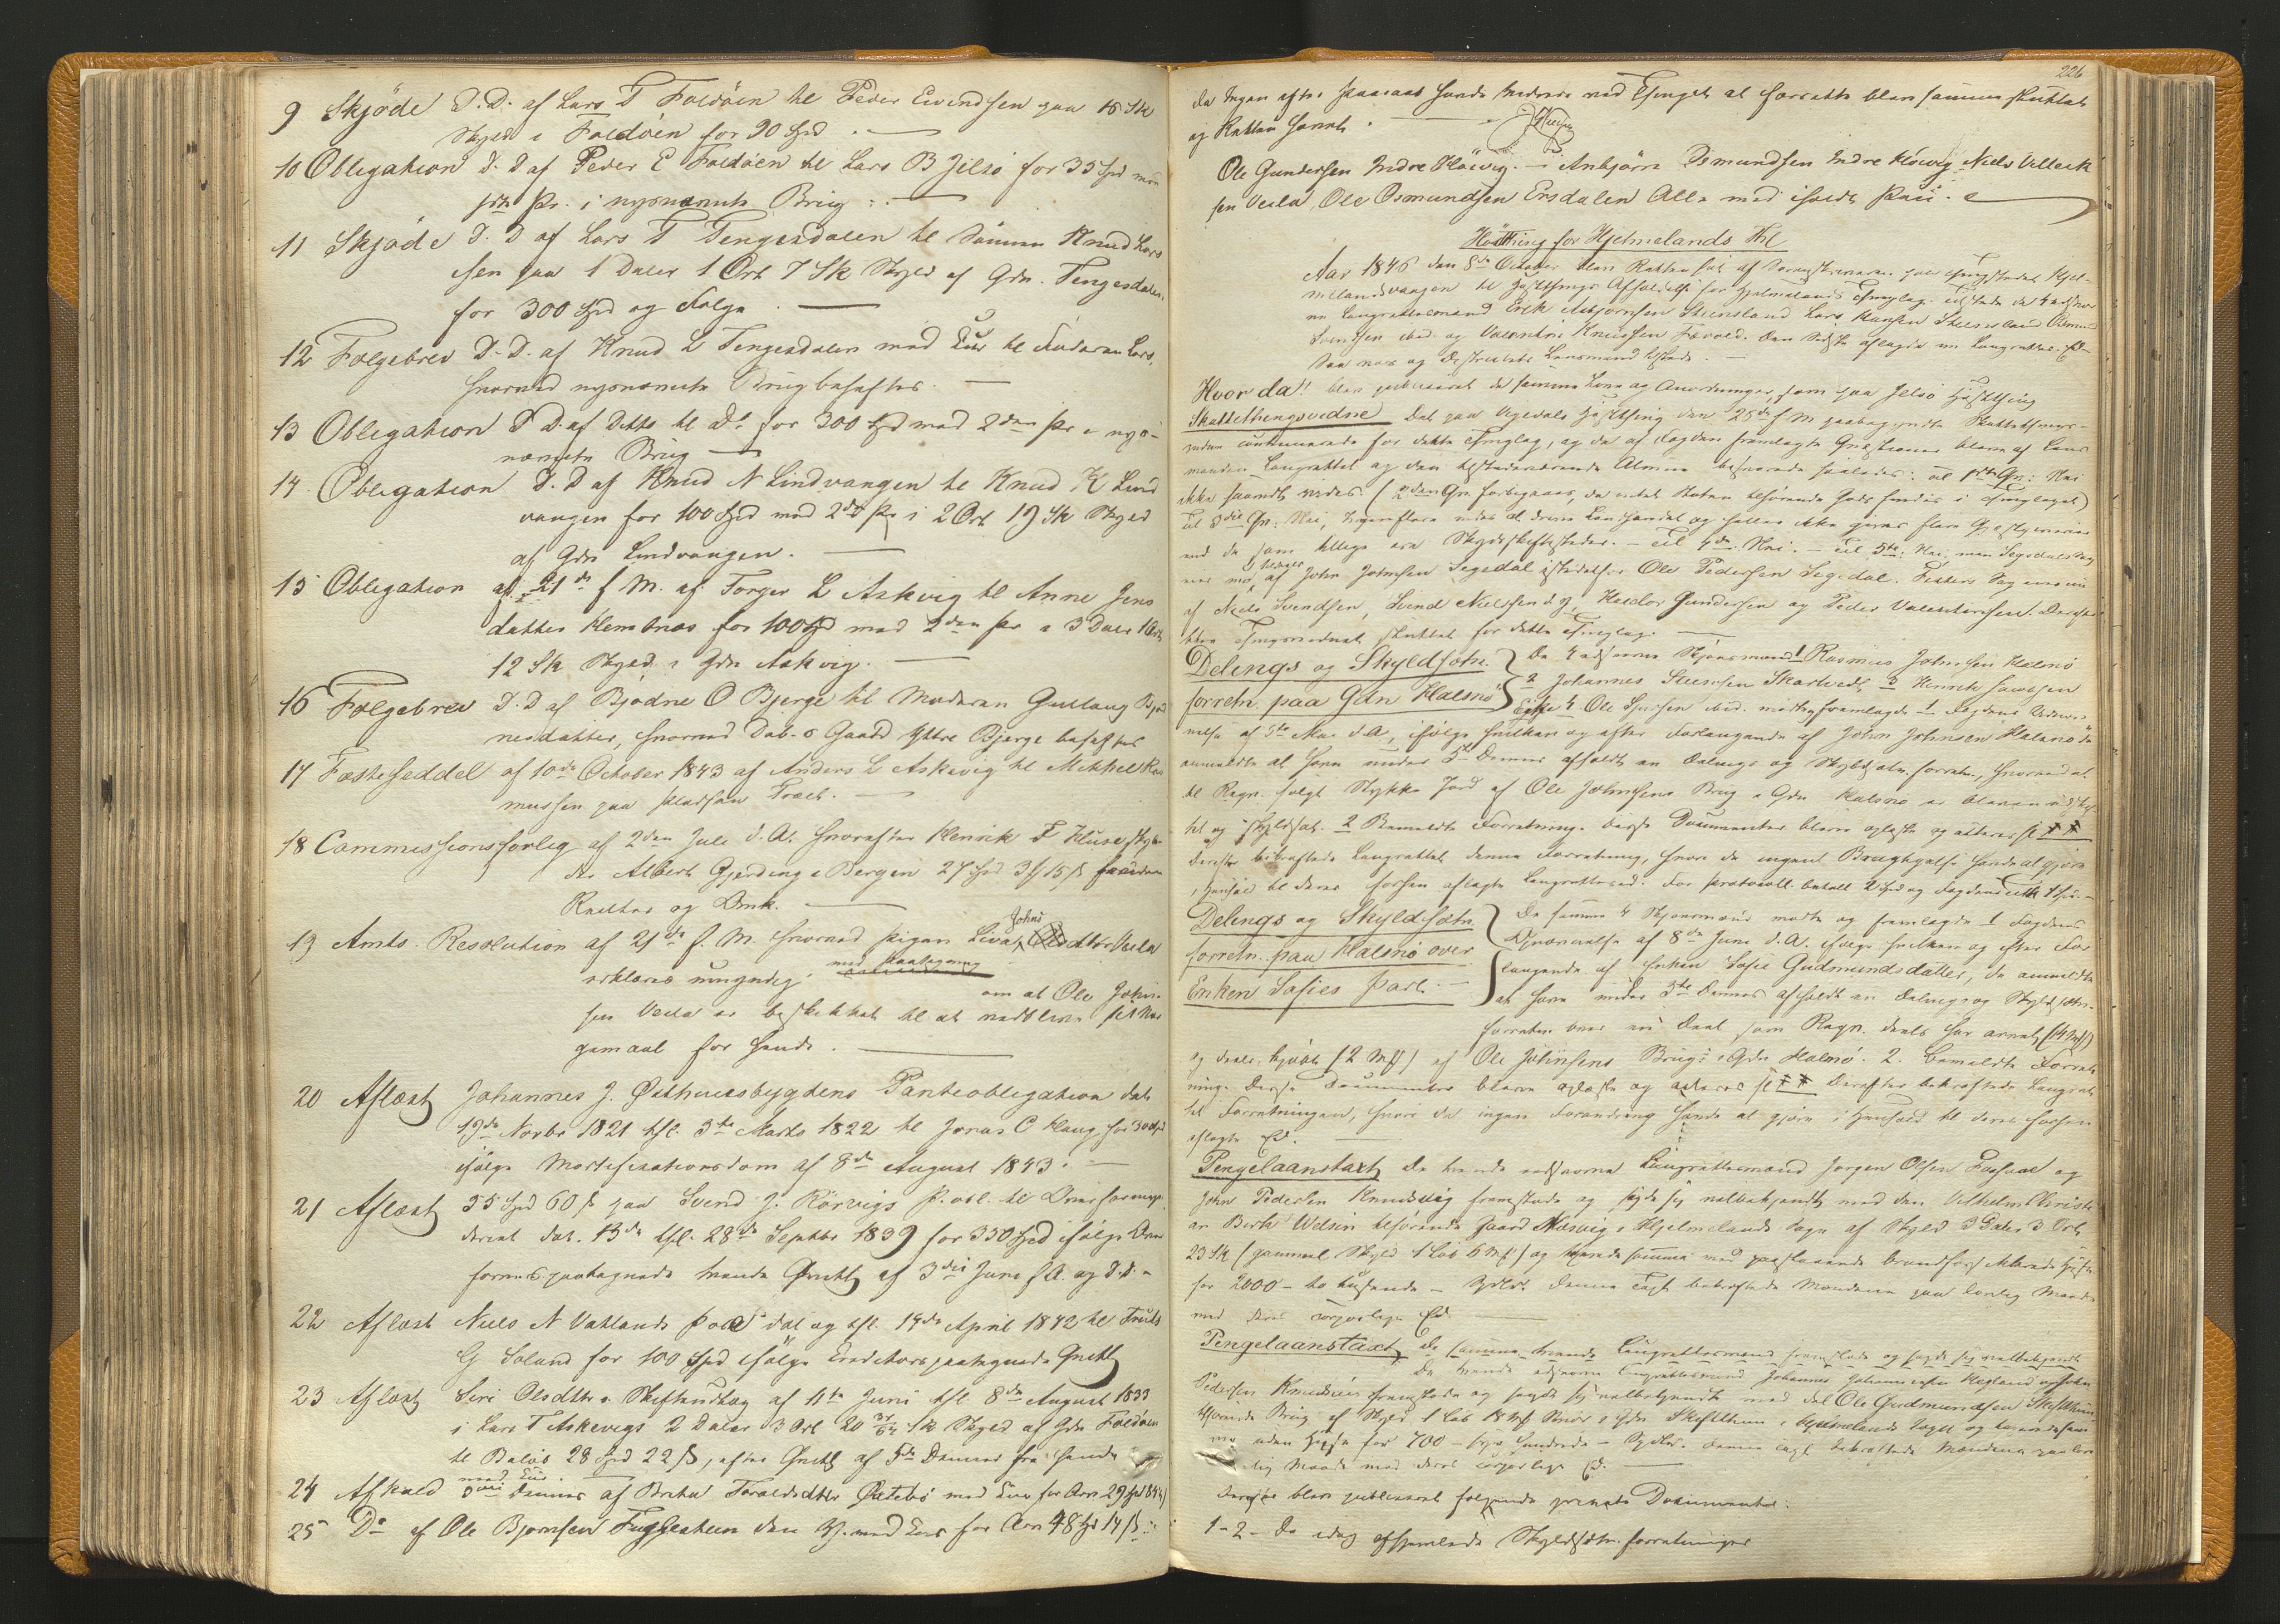 9 Skjöde D. D. af Lars T Foldöen til Peder Eivindsen paa 15 Sk
Skyld i Foldöen for 90 Spd
10 Obligation D. D af Peder E Foldöen til Lars B Jelsö for 35 Spd mod
1ste Pr. i nysnævnte Brug.
11 Skjöde D. D af Lars T Tengesdalen til Sönnen Knud Lars
sen paa 1 Daler 1 Ort 7 Sk Skyld af Gdn. Tengesdalen
for 300 Spd og Følge
12 Følgebrev D. D. af Knud L Tengesdalen med Cur til Faderen Lars,
hvorved nysnævnte Brug behæftes.
13 Obligation D D. af Ditto til Do for 300 Spd mod 2den Pr. i nys-
nævnte Brug
14 Obligation D. D af Knud N Lindvangen til Knud K Lind
vangen for 100 Spd mod 2den Pr i 2 Ort 19 Sk Skyld
af Gdn Lindvangen.
15 Obligation af 21de f. M. af Torger L Askvig til Anne Jens
datter Hembnæs for 100 Spd mod 2den Pr i 3 Daler 1 Ort
12 Sk Skyld i Gdn Askvig.
16 Følgebrev D. D af Bjödne O Bjerge til Moderen Gullaug Bjöd
nesdatter, hvorved Gaard Ytre Bjerge behæftes
17 Fæsteseddel af 10de October 1843 af Anders L Askevig til Mikkel Ras
mussen paa Pladsen Træet.
18 Commissionsforlig af 2den Juli d. A. hvorefter Henrik F Kluse skyl-
der Albert Gjerding i Bergen 27 Spd 3 15 ß foruden
Renter og Omk.
19 Amts-Resolution af 21de f. M. hvorved Pigen Siva Johns dtter Vela
erklæres umyndig med Paategning
om at Ole John-
sen Vela er beskikket til at vedblive sit Vær
gemaal for hende.
20 Aflæst Johannes J. Østhuusbygdens Panteobligation dat
19de Novbr 1821 thl. 3die Marts 1822 til Jonas C Haug for 300 Spd
ifölge Mortificationsdom af 8de August 1843.
21 Aflæst 35 Spd 60 ß paa Svend J. Rörvigs P. obl. til Overformyn-
deriet dat. 13de thl. 28de Septbr 1839 for 350 Spd ifölge Over
formynd. paategnede Qvitt af 3die Juni f A. og D. D.
22 Aflæst Niels N Vatlands P. obl dat og thl. 19de April 1842 til Truls
G Soland for 100 Spd ifölge Creditors paategnede Qvitt
23 Aflæst Siri Olsdtrs Skifteudlæg af 11te Juni thl. 8de August 1833
i Lars T Askevigs 2 Daler 3 Ort 20 Sk Skyld af Gdn Foldöen
til Belöb 28 Spd 22 ß, efter Qvitt af 5te Dennes fra hende
24 Afkald 3die Dennes af Brita Toraldsdtter Östebö med Cur for Arv 29 Spd
med Cur.
25 Do af Ole Bjornsen Fuglestein med Cur for Arv 48 Spd 14 ß
226
Da Ingen efter Paaraab havde Mere ved Thinget at forrette blev samme sluttet
og Retten hævet.
Ole Gundersen Indre Höivig. Anbjörn Osmundsen Indre Höivig Niels Villuk
sen Vela, Ole Osmundsen Ersdalen Alle med iholdt Pen.
Høstthing for Hjelmelands Skl
Aar 1846 den 8de October blev Retten sat af Sorenskriveren paa Thingstedet Hjel-
melandsvaagen til Høstthings Afholdelse for Hjelmelands Thinglag. Tilstede de 4 edsvor
ne Laugrettesmænd Erik Asbjörnsen Steensland Lars Hansen Steensland Osmund
Svendsen ibid. og Valentin Knudsen Favold. Den Sidste aflagde sin Laugrettes-Ed.
Saa var og Districtets Lensmand tilstede.
Hvorda! blev publiceret de samme Love og Anordninger, som paa Jelsö Høstthing
Skattethingsvidne Det paa Vigedals Høstthing den 25de f M paabegyndte Skattethings-
vidne continuerede for dette Thinglag, og de af Fogden fremlagte Qvæstioner bleve af Lens
manden, Laugrettet og den tilstedeværende Almue besvarede saaledes: til 1ste Qv: Nei
ikke saavidt vides. (2den Qv forbigaaes, da intet Staten tilhörende Gods findes i Thinglaget)
til 3die Qv: Nei, Ingen flere vides at drive Landhandel og heller ikke gives flere Gjæstgiverier
end de som tillige ere Skydsskiftesteder. - til 4de Nei. - til 5te: Nei, men Segedals Sag
er nu af John Johnsen Segedal istedetfor Ole Pedersen Segedal. Fisters Sag nu
af Niels Svendsen, Svend Nielsen, Haldor Gundersen og Peder Valentinsen. Derefter
blev Thingsvidnet sluttet for dette Thinglag.
Delings og Skyldsætn.
forretn. paa Gdn Halsnö
De 4 edsvorne Skjönsmænd 1 Rasmus Johnsen Halsnö
2 Johannes Steensen Skartvedt 3 Henrik Hansen
Eide 4 Ole Ibsen ibid. mödte og fremlagde 1 Fogdens Udnæv-
nelse af 5te Mai d A, ifölge hvilken og efter Forlangende af John Johnsen Halsnö de
anmeldte at have under 3die Dennes afholdt en Delings og Skyldsætn. forretn., hvorved et
til Regn. solgt Stykke Jord af Ole Johnsens Brug i Gdn Halsnö er bleven udskif
tet og skyldsat. 2 Bemeldte Forretning. Disse Documenter bleve oplæste og acteres sl ††
Derefter bekræftede Laugrettet denne Forretning, hvori de ingen Berigtigelse havde at gjöre
i Henhold til deres forhen aflagte Laugrettesed. For Protocoll. betalt 2 Spd og Fogdens Udk 1 Spd.
Delings og Skyldsætn
forretn. paa Halsnö over
Enken Sofies Part.
De samme 4 Skjönsmænd mödte og fremlagde 1 Fogdens
Udnævnelse af 8de Juni d. A. ifölge hvilken og efter For
langende af Enken Sofie Gudmundsdatter, de anmeldte
at have under 3die Dennes afholdt en Delings og Skyldsætn.
forretn. over en Deel som Reqv. deels har arvet (4 Mk)
og deels kjöbt (2 Mk) af Ole Johnsens Brug i Gdn Halsnö. 2. bemeldte Forret
ning. Disse Documenter bleve oplæste og acteres sl ††. Derefter bekræftede Laugret
tet Forretningen, hvori de ingen Forandring havde at gjöre i Henhold til deres forhen
aflagte Ed.
Pengelaanstaxt De tvende edsvorne Laugrettesmænd Jorgen Olsen Fosaae og
John Pedersen Knudsvig fremstode og sagde sig velbekjendte med den Vilhelm Christi
an Birk Welsin tilhörende Gaard Næsvig i Hjelmelands Sogn af Skyld 3 Daler 3 Ort
23 Sk (gammel Skyld 1 Löb 6 Mk) og taxerede samme med paastaaende brandforsikkrede Huse
for 2000 - to tusende - Spdlr. Denne Taxt bekræftede Mændene paa lovlig Maade
med deres corporlige Ed.
Pengelaanstaxt De samme tvende Laugrettesmænd fremstode og sagde sig velbekjendt
De tvende edsvorne Laugrettesmænd Johannes Johannessen Hegland og John
Pedersen Knudsvig fremstode og sagde sig velbekjendt med det Ole Gudmundsen Skiftthun
tilhörende Brug af Skyld 1 Löb 18 Mk Smör i Gdn Skiftthun i Hjelmelands Sogn og taxerede sam
me uden Huse for 700 - syv hundrede - Spdlr. Denne Taxt bekræftede Mændene paa lov
lig Maade med deres corporlige Ed.
Derefter blev publiceret følgende private Documenter:
1-2- De idag afhjemlede Skyldsætn. forretninger